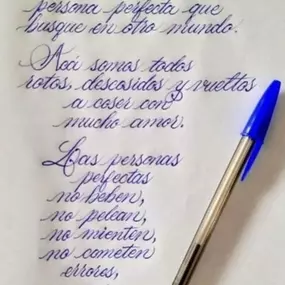 persona perfecta que
busque en otro mundo.
Acá somos todos
rotos, descosidos y vueltos
a coser con
mucho amor.
Las personas
perfectas
no beben,
no pelean,
no mienten,
no cometen
errores,